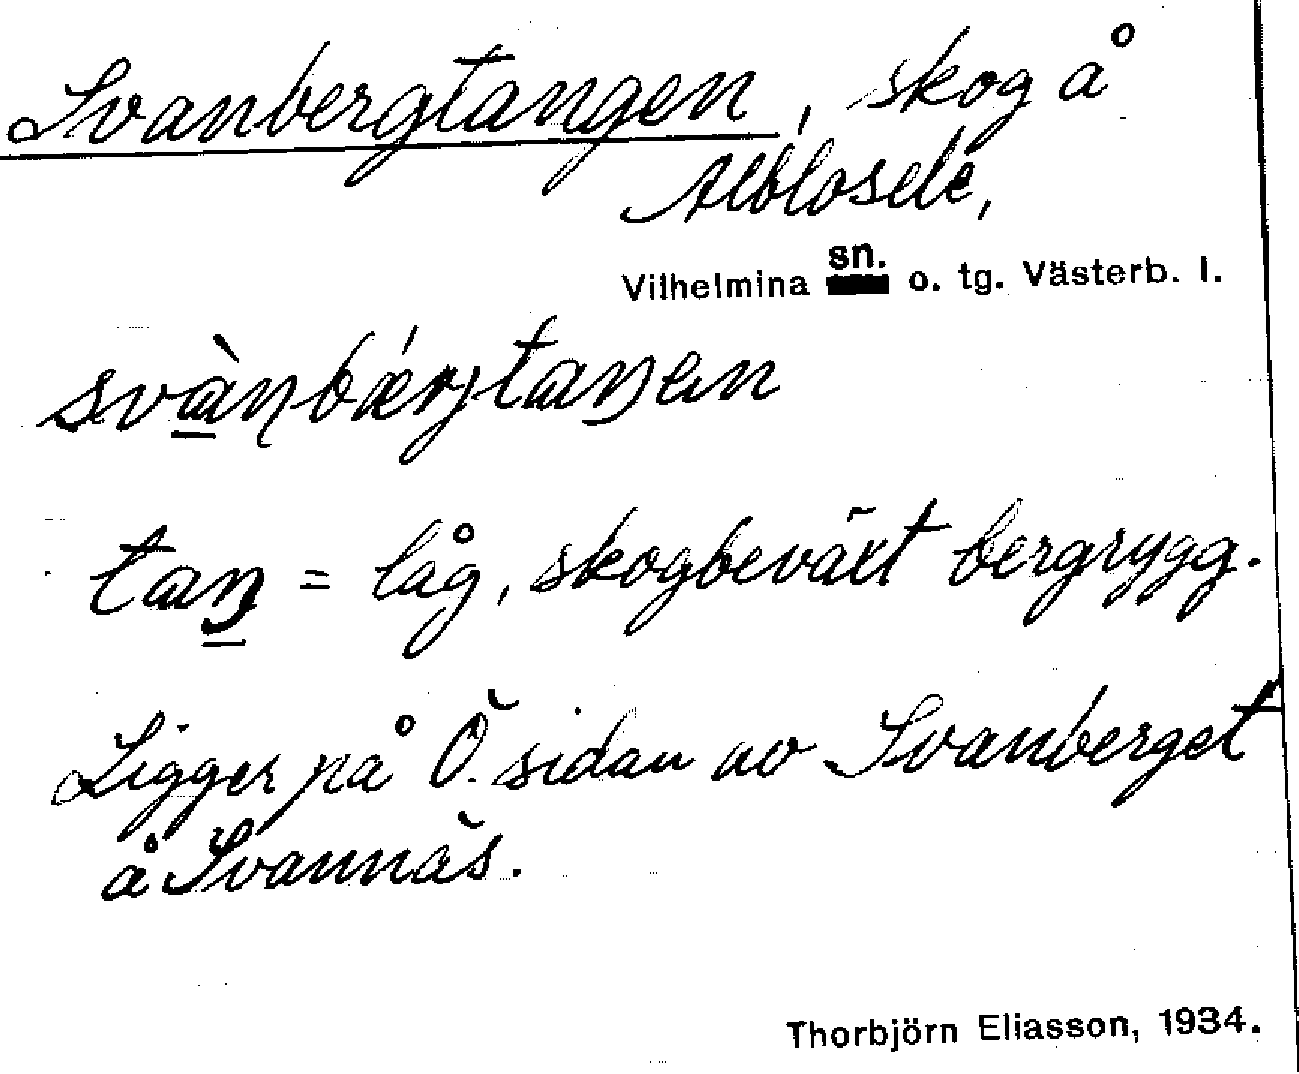 Svanbergtangen, skog å
Alblosele,
Vilhelmina sn. o. tg. Västerb. l.
svànbǽrjtaŋen
taŋ = låg, skogbeväxt bergrygg.
Ligger på Ö. sidan av Svanberget
å Svannäs.
Thorbjörn Eliasson, 1934.